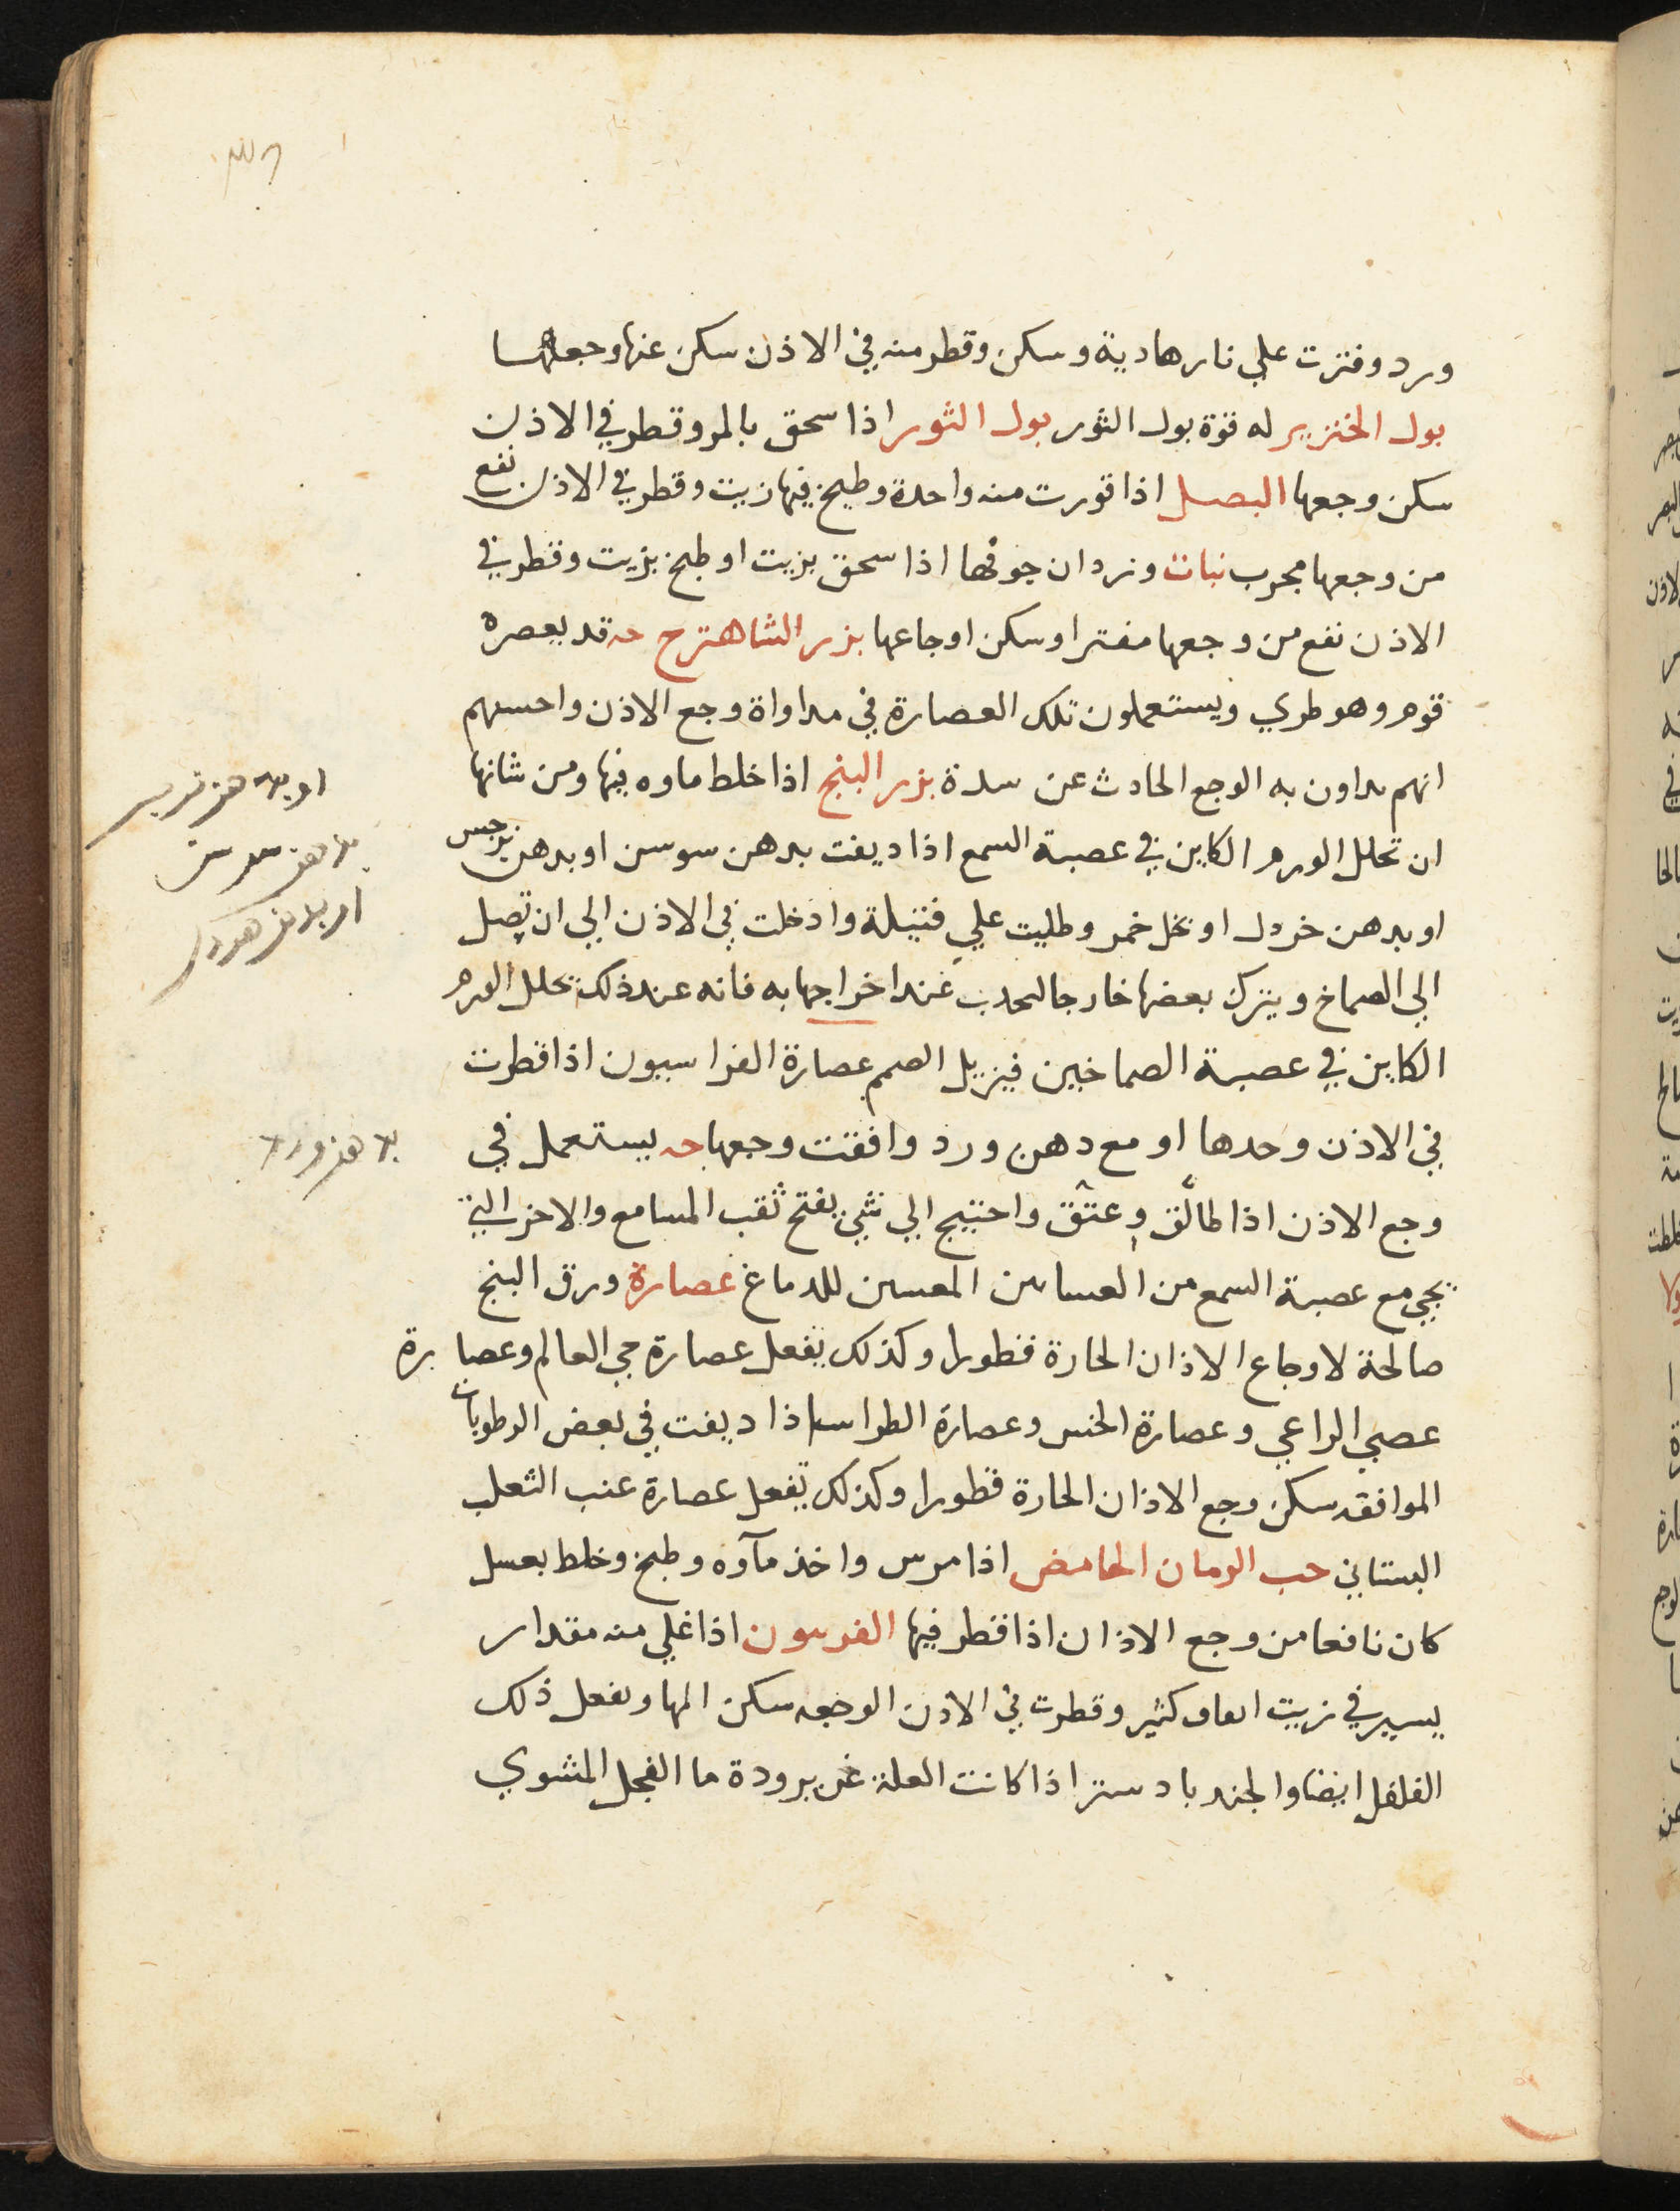 ورد وفترت علي نار هادية وسكن وقطر منه في الاذن سكن عنها وجعها
بول الخنزير له قوة بول الثور بول الثور اذا سحق بالمر وقطر في الاذن
سكن وجعها البصل اذا قورت منه واحدة وطبخ فيها زيت وقطر في الاذن نفع
من وجعها مجرب نبات وردان جوفها اذا سحق بزيت او طبخ بزيت وقطر في
الاذن نفع من وجعها مفترا وسكن اوجاعها بزر الشاهترج حه قد يعصره
قوم وهو طري ويستعملون تلك العصارة في مداواة وجع الاذن واحسبهم
انهم يداون به الوجع الحادث عن سدة بزر البنج اذا خلط ماوه فيها ومن شانها
ان تحلل الورم الكاين في عصبة السمع اذا ديفت بدهن سوسن او بدهن نرجس
او بدهن خردل او بخل خمر وطليت علي فتيلة وادخلت في الاذن الي ان تصل
الي الصماخ ويترك بعضها خارجا لتجذب عند اخراجها به فانه عند ذلك تحلل الورم
الكاين في عصبة الصماخين فيزيل الصمم عصارة الفراسيون اذا قطرت
في الاذن وحدها او مع دهن ورد وافقت وجعها حه يستعمل في
وجع الاذن اذا طال وعتق واحتيج الي شي يفتح ثقب المسامع والاخر التي
تجي مع عصبة السمع من المعسين للدماغ عصارة ورق البنج
صالحة لاوجاع الاذان الحارة قطورا وكذلك يفعل عصارة حي العالم وعصارة
عصي الراعي وعصارة الخس وعصارة اذا ديفت في بعض الرطوبات
الموافقه سكن وجع الاذان الحارة قطورا وكذلك تفعل عصارة عنب الثعلب
البستاني حب الرمان الحامض اذا مرس واخذ مآوه وطبخ وخلط بعسل
كان نافعا من وجع الاذان اذا قطر فيها الفربيون اذا غلي منه مقدار
يسير في زيت انفاق كثير وقطرت في الاذن الوجعه سكن المها ويفعل ذلك
الفلفل ايضا والجندبادستر اذا كانت العلة عن برودة ما الفجل المشوي
بدهن سوسن
بدهن ورد